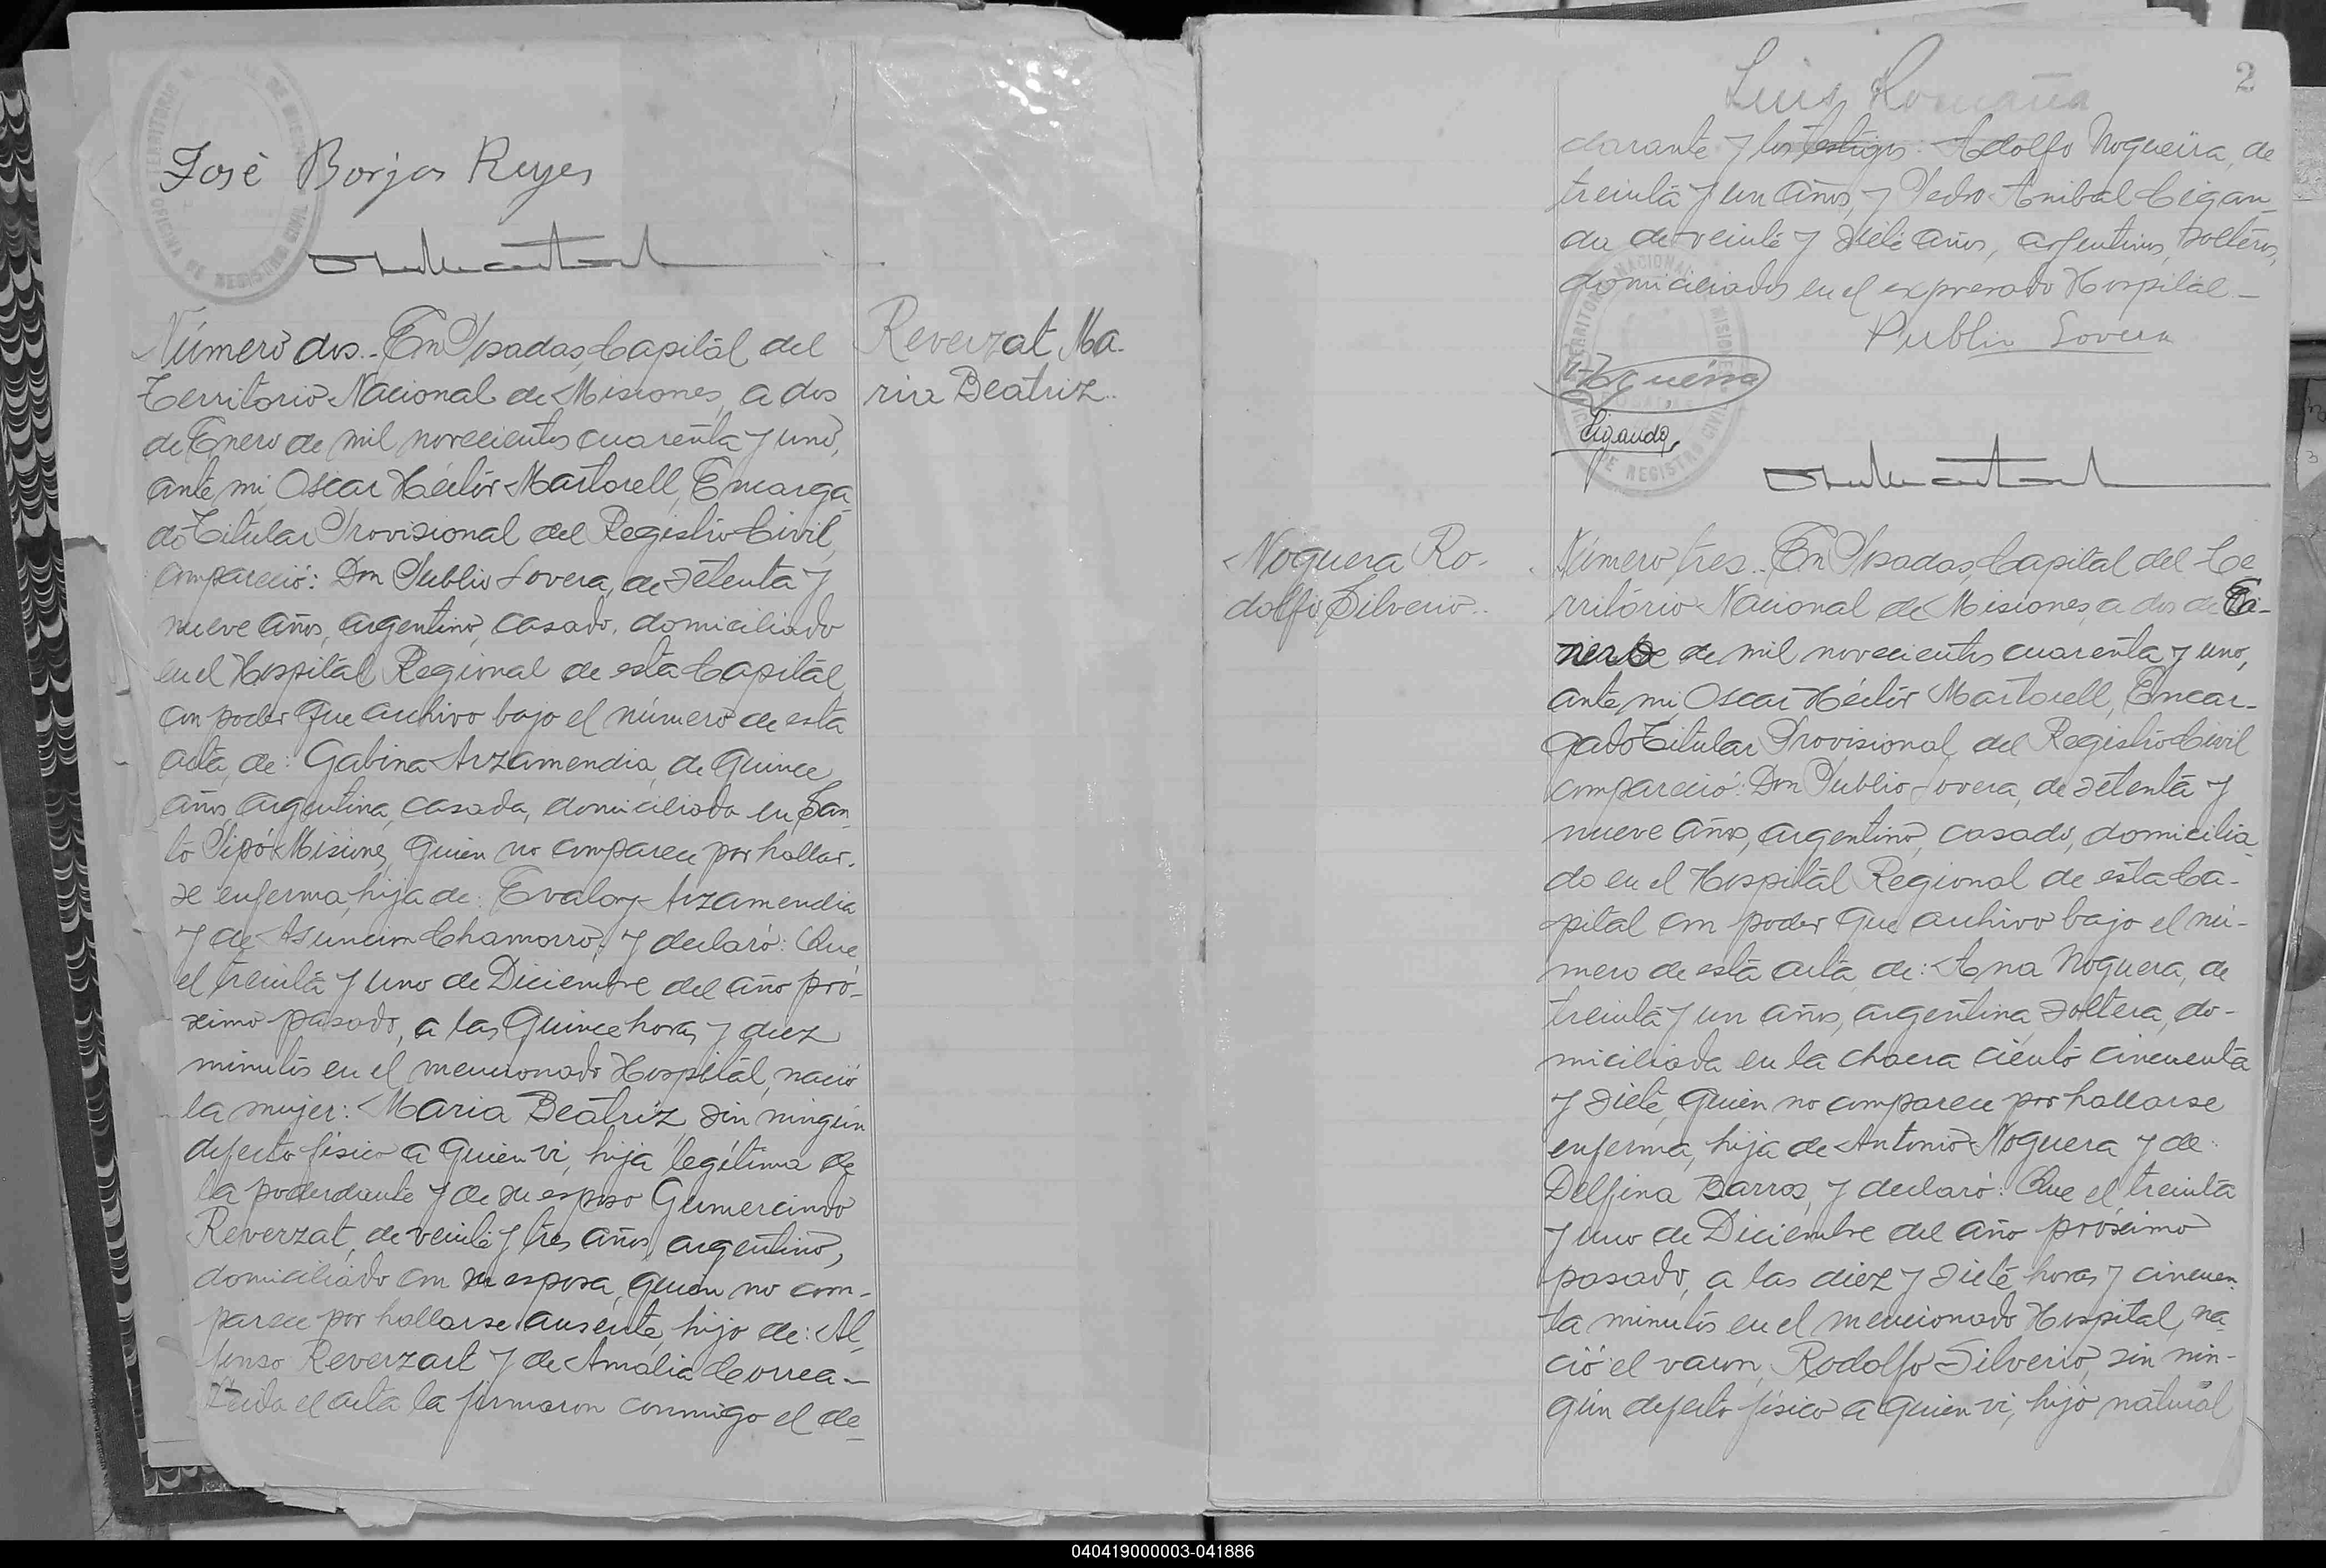 José Borjas Reyes
Número dos.- En Posadas, Capital del
Territorio Nacional de Misiones, a dos
de Enero de mil novecientos cuarenta y uno,
ante mi, Oscar Héctor Martorell, Encarga-
do Titular Provisional del Registro Civil,
compareció: Don Publio Lovera, de setenta y
nueve años, argentino, casado, domiciliado
en el Hospital Regional de esta Capital,
con poder que archivo bajo el número de esta
acta, de: Gabina Arzamendia, de quince
años, argentina, casada, domiciliada en San-
to Pipó Misiones, quien no comparece por hallar-
se enferma, hija de: Evalory Arzamendia
y de Asuncion Chamorro, y declaró: Que
el treinta y uno de Diciembre del año pró-
ximo pasado, a las quince horas y diez
minutos en el mencionado Hospital, nació
la mujer: Maria Beatriz, sin ningún
defecto físico a quien vi, hija legítima de
la poderdante y de su esposo Gumercindo
Reverzat, de veinte y tres años, argentino,
domiciliado con su esposa, quien no com-
parece por hallarse ausente, hijo de: Al-
fonso Reverzart y de Amalia Correa.-
Leida el acta la firmaron conmigo el de-
Reverzat Ma-
ria Beatriz..
2
Luis Romaña
clarante y los testigos: Adolfo Nogueira, de
treinta y un años, y Pedro Anibal Cigan-
da de veinte y siete años, argentinos, solteros,
domiciliados en el expresado Hospital.-
Publio Lovera
Nogueira
Ciganda
TERRITORIO NACIONAL DE MISIONES
OFICINA DE REGISTRO CIVIL
Noguera Ro-
dolfo Silverio..
Número tres.- En Posadas, Capital del Te-
rritorio Nacional de Misiones, a dos de E-
nero de mil novecientos cuarenta y uno,
ante mi Oscar Héctor Martorell, Encar-
gado Titular Provisional del Registro Civil
compareció: Don Publio Lovera, de setenta y
nueve años, argentino, casado, domicilia-
do en el Hospital Regional de esta Ca-
pital con poder que archivo bajo el nú-
mero de esta acta, de: Ana Noguera, de
treinta y un años, argentina, soltera, do-
miciliada en la chacra ciento cincuenta
y siete, quien no comparece por hallarse
enferma, hija de Antonio Noguera y de
Delfina Barros, y declaró: Que el treinta
y uno de Diciembre del año próximo
pasado, a las diez y siete horas y cincuen-
ta minutos en el mencionado Hospital, na-
ció el varon, Rodolfo Silverio, sin nin-
gún defecto físico a quien vi, hijo natural
040419000003-041886